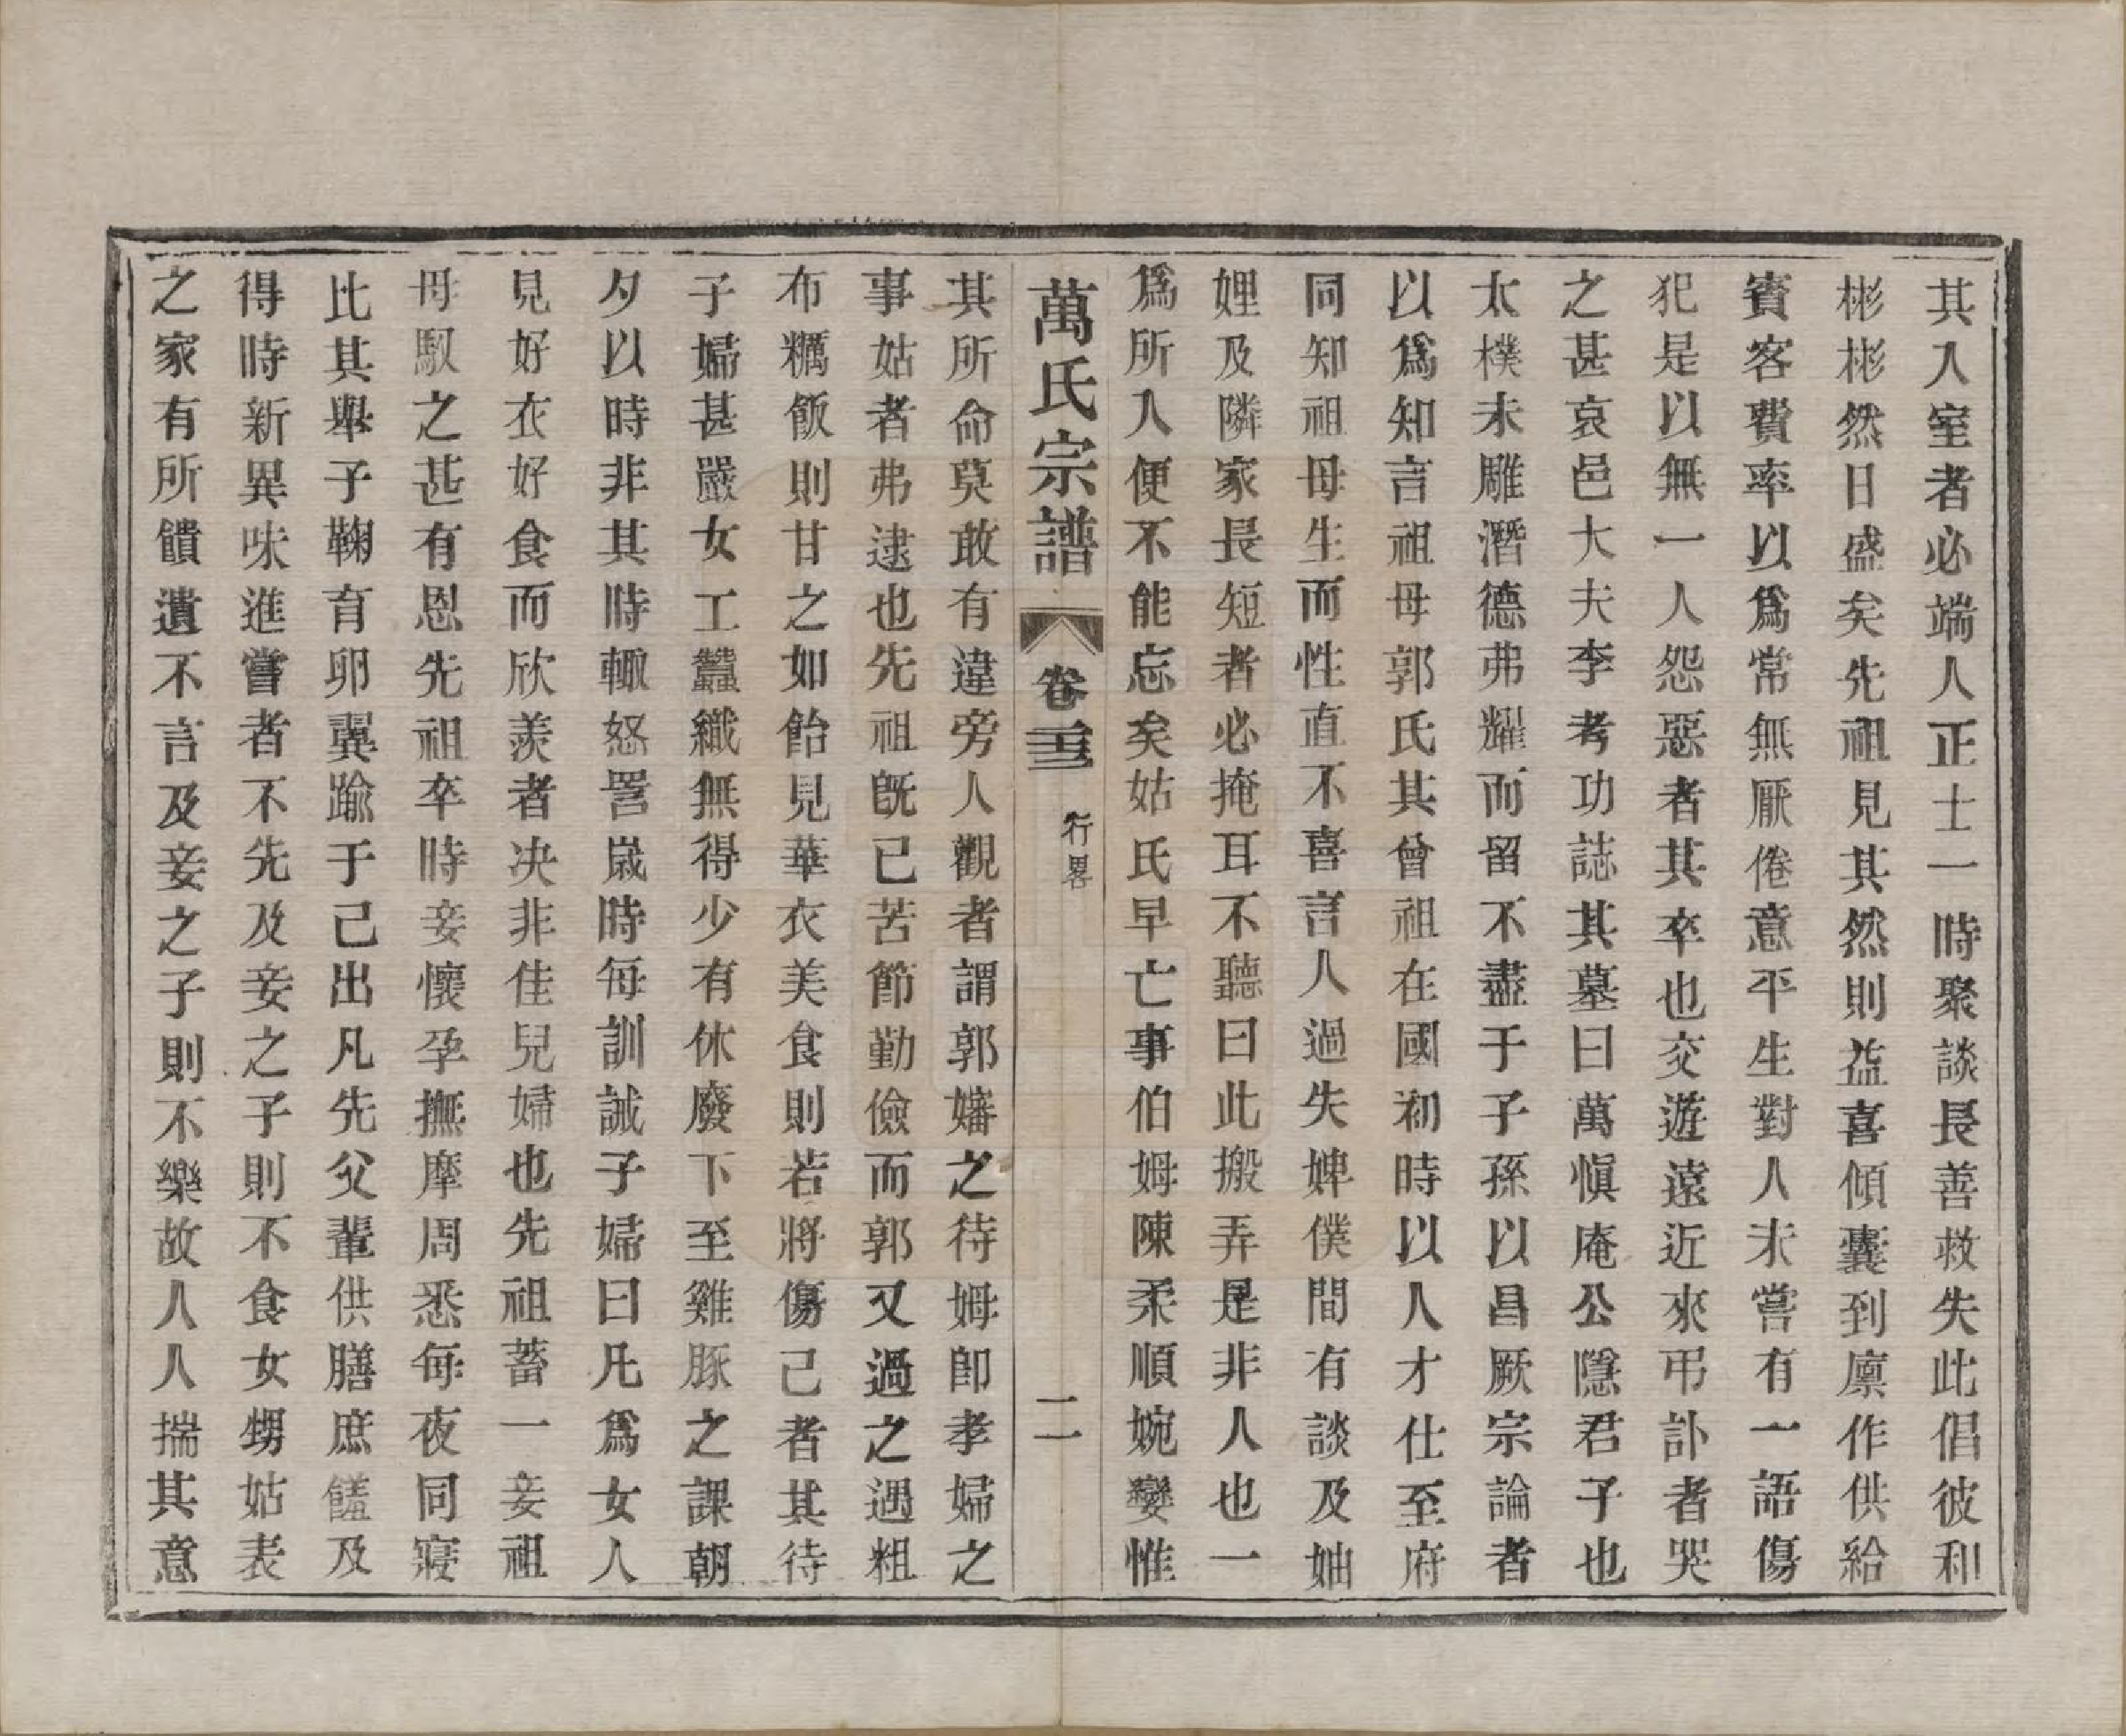 其入室者必端人正士一時聚談長善救失此倡彼和
彬彬然日盛矣先祖見其然則益喜傾囊到廪作供給
賓客費率以爲常無厭倦意平生對人未嘗有一語傷
犯是以無一人怨惡者其卒也交遊遠近來弔訃者哭
之甚哀邑大夫李考功誌其墓曰萬愼庵公隱君子也
太樸未雕潛德弗耀而留不盡于子孫以昌厥宗論者
以爲知言祖母郭氏其曾祖在國初時以人才仕至府
同知祖母生而性直不喜言人過失婢僕間有談及妯
娌及隣家長短者必掩耳不聽曰此搬弄是非人也一
爲所人便不能忘矣姑氏早亡事伯姆陳柔順婉孌惟
萬氏宗譜 卷二三 行畧 二
其所命莫敢有違旁人觀者謂郭嬸之待姆卽孝婦之
事姑者弗逮也先祖旣已苦節勤儉而郭又過之遇粗
布糲飯則甘之如飴見華衣美食則若將傷己者其待
子婦甚嚴女工蠶織無得少有休廢下至雞豚之課朝
夕以時非其時輙怒詈嵗時每訓誡子婦曰凡爲女人
見好衣好食而欣羨者决非佳兒婦也先祖蓄一妾祖
母馭之甚有恩先祖卒時妾懷孕撫摩周悉每夜同寢
比其舉子鞠育卵翼踰于己出凡先父輩供膳庶饈及
得時新異味進嘗者不先及妾之子則不食女甥姑表
之家有所饋遺不言及妾之子則不樂故人人揣其意